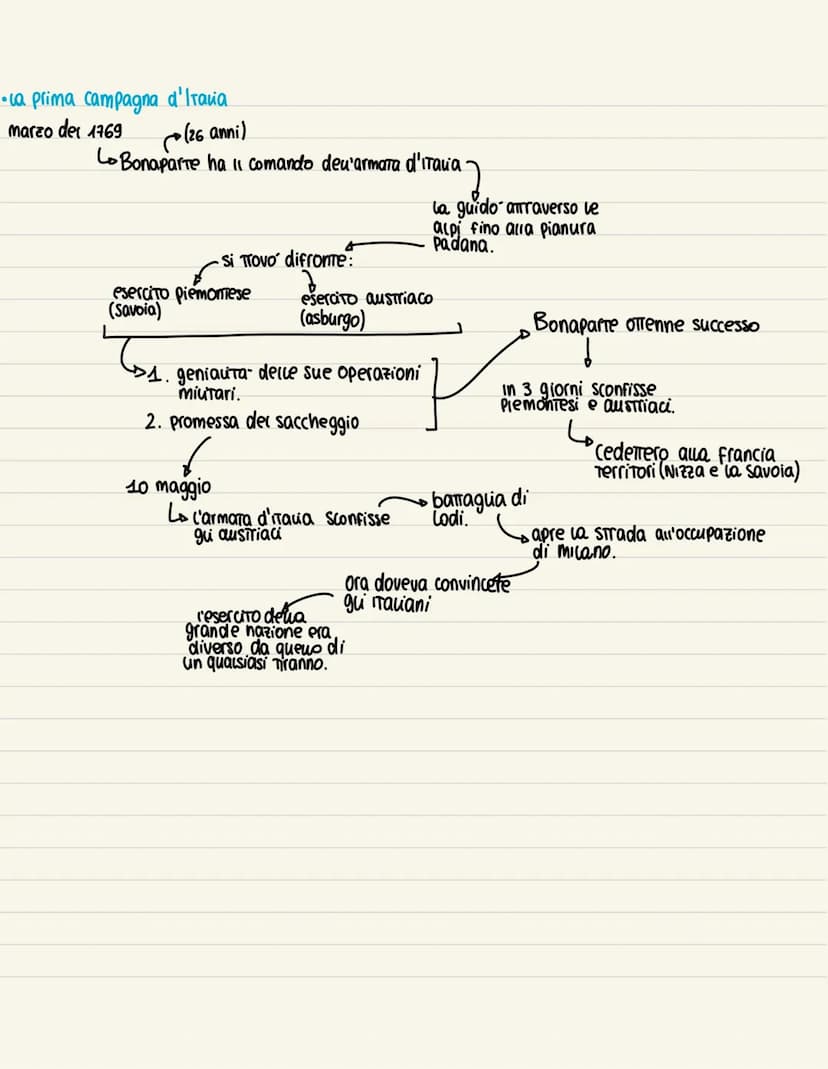 •La prima campagna d'Italia
marzo del 1769
(26 anni)
Bonaparte ha il comando dell'armata d'Italia
la guidò attraverso le
alpi fino alla pianura
Padana.
si trovò difronte:
esercito piemontese
(Savoia)
esercito austriaco
(asburgo)
Bonaparte ottenne successo
1. genialità delle sue operazioni
militari.
in 3 giorni sconfisse
Piemontesi e austriaci.
2. promessa del saccheggio
Cedettero alla Francia
territori (Nizza e la Savoia)
10 maggio
battaglia di
Lodi.
L'armata d'italia sconfisse
gli austriaci
apre la strada all'occupazione
di Milano.
ora doveva convincere
gli italiani
l'esercito della
grande nazione era
diverso da quello di
un qualsiasi tiranno.